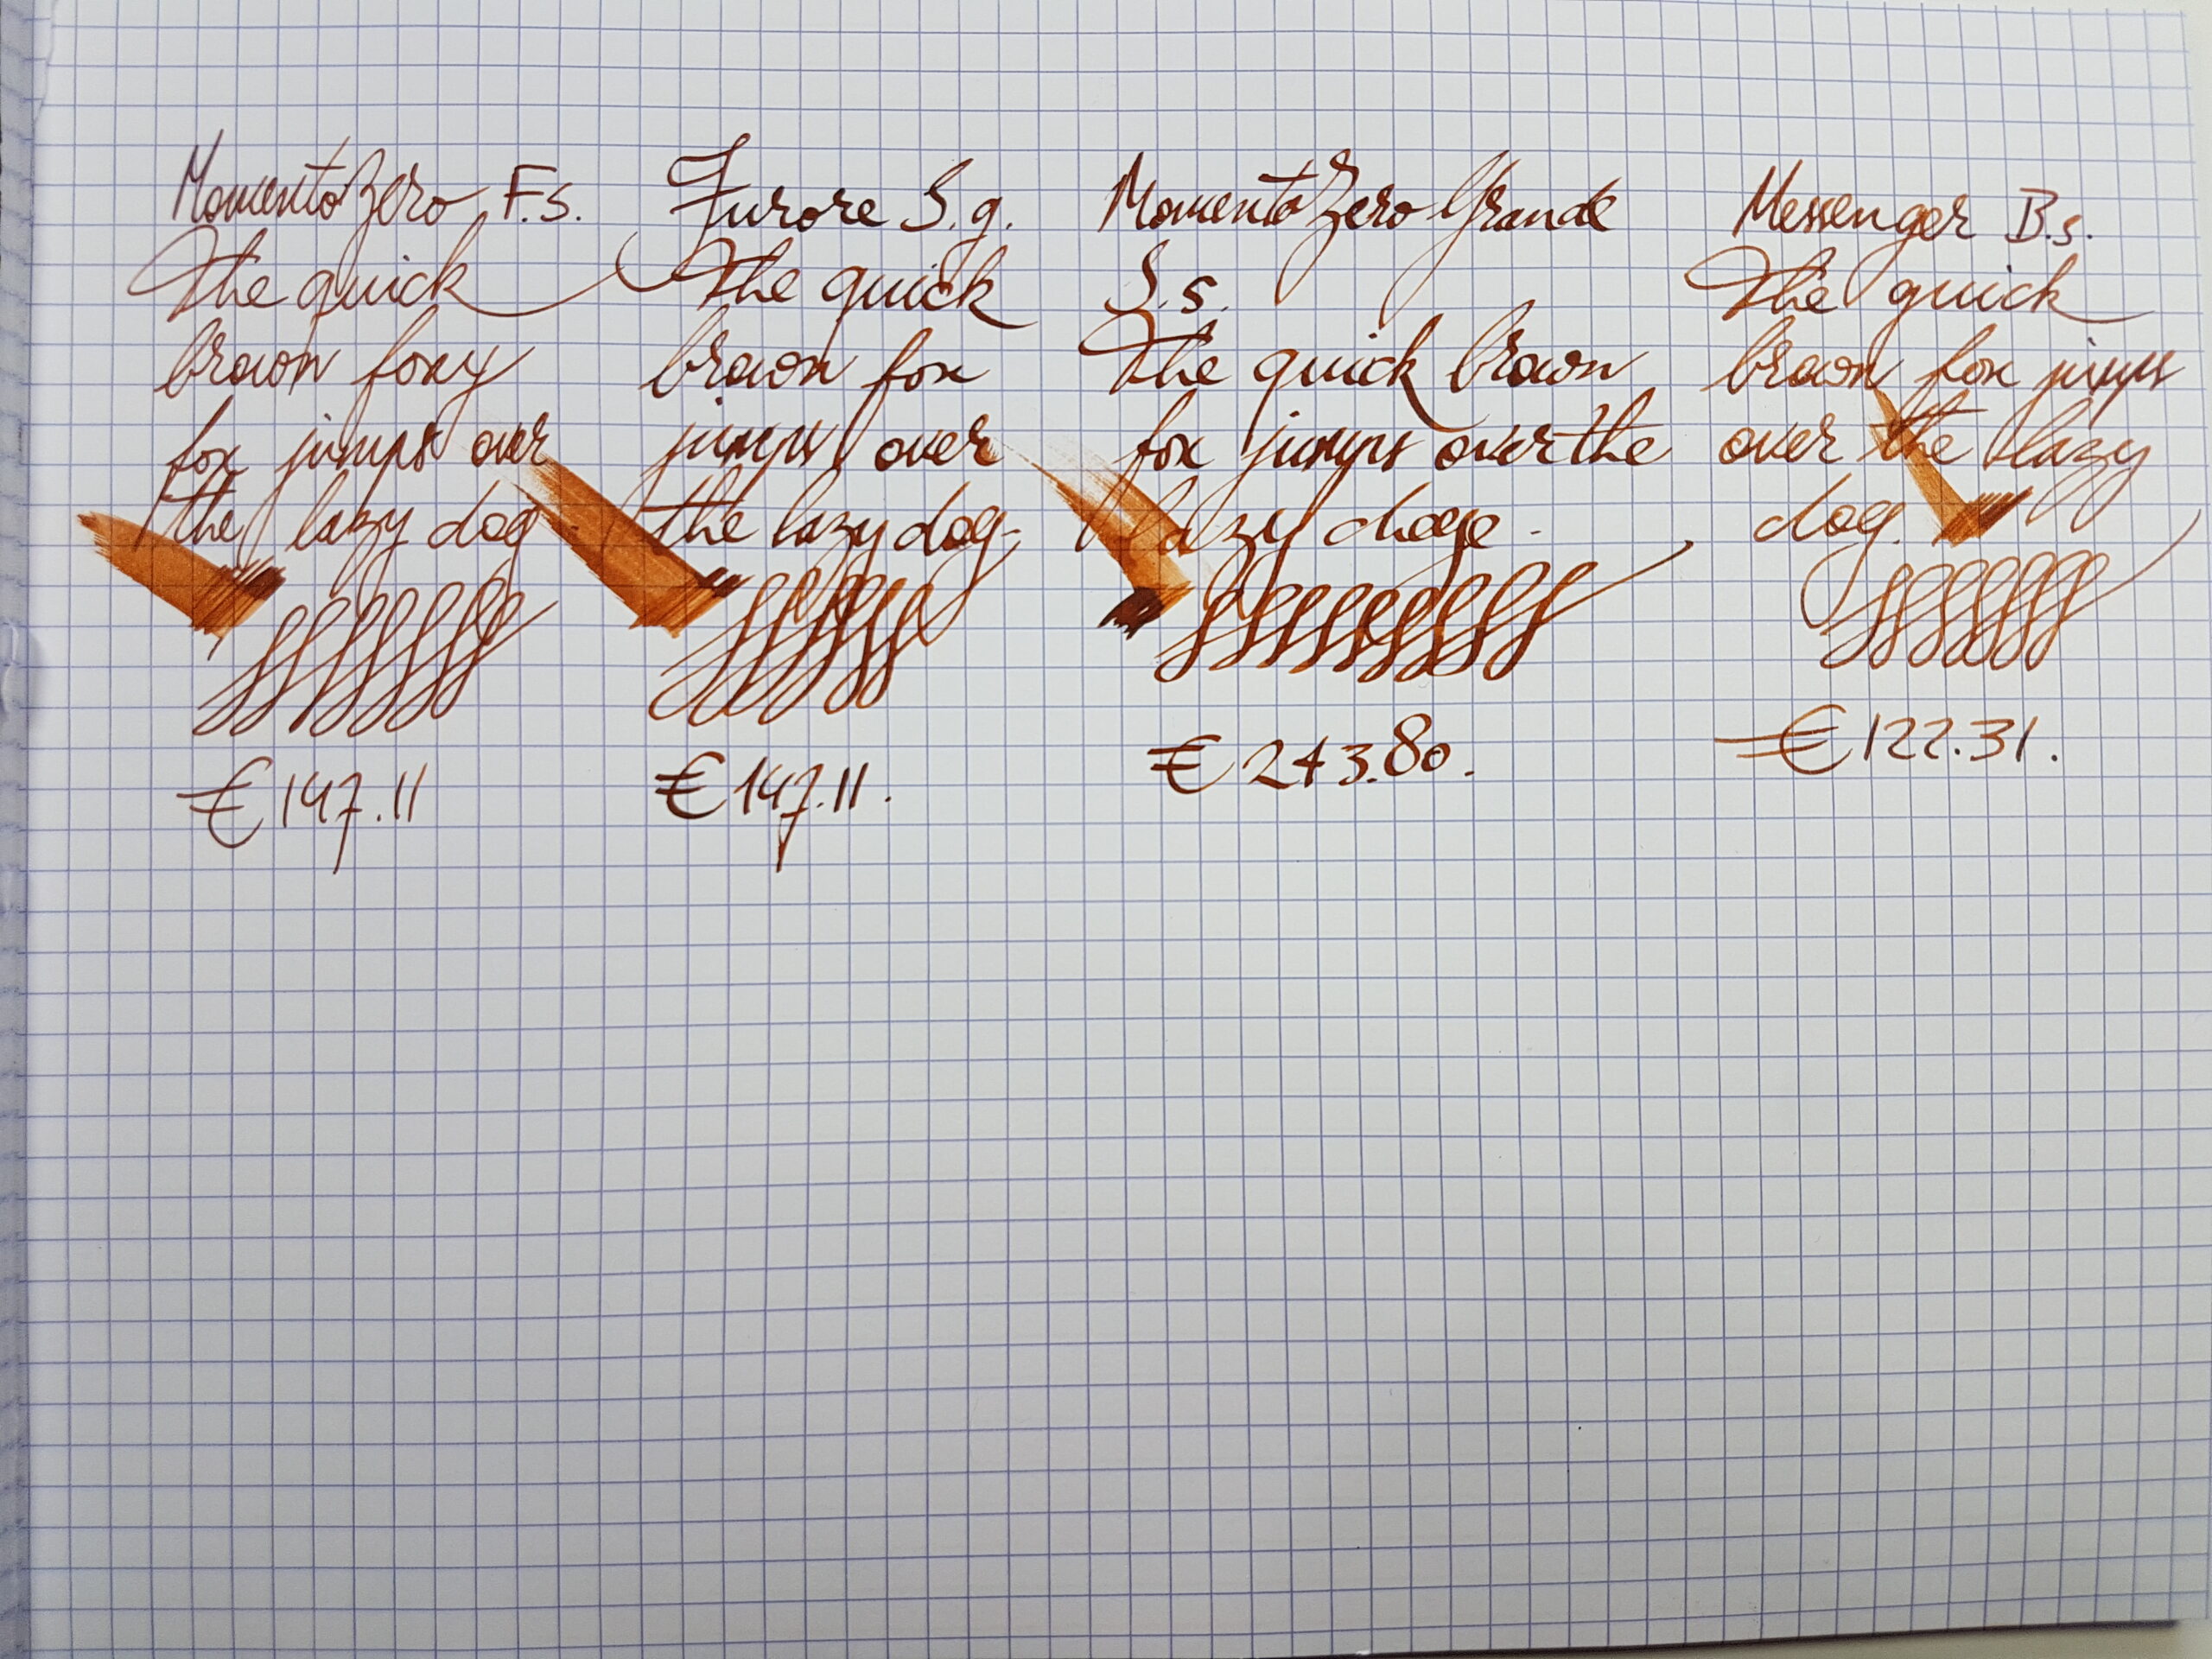 Momento Zero F.s.
The quick
brown foxy
fox jumps over
the lazy dog
€147.11
Furore S.g.
The quick
brown fox
jumps over
the lazy dog-
€147.11.
Momento Zero Grande
S.s.
The quick brown
fox jumps over the
lazy
€243.80.
Messenger B.s.
The quick
brown fox jumps
over the lazy
dog.
€122.31.